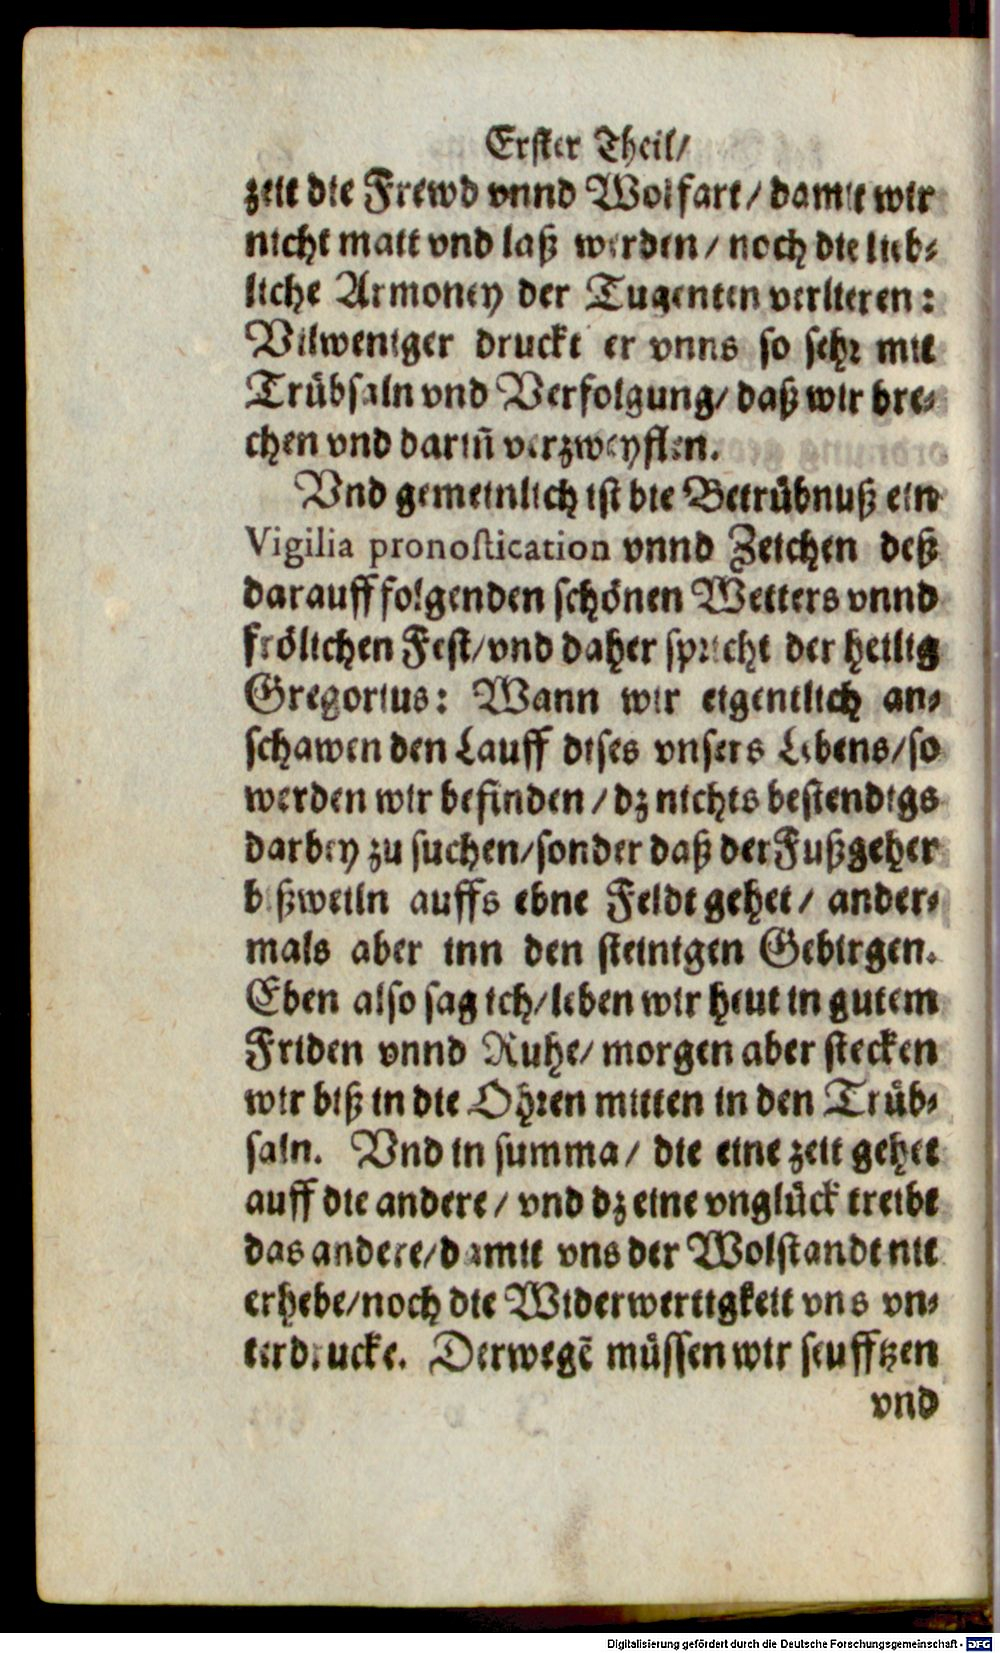 Erster Theil/
zeit die Frewd vnnd Wolfart/ damit wir
nicht matt vnd laß werden/ noch die lieb-
liche Armoney der Tugenten verlieren:
Vilweniger druckt er vnns so sehr mit
Trübsaln vnd Verfolgung/ daß wir bre-
chen vnd dariñ verzweyflen.
Vnd gemeinlich ist die Betrübnuß ein
Vigilia pronostication vnnd Zeichen deß
darauff folgenden schönen Wetters vnnd
frölichen Fest/ vnd daher spricht der heilig
Gregorius: Wann wir eigentlich an-
schawen den Lauff dises vnsers Lebens/ so
werden wir befinden/ dz nichts bestendigs
darbey zu suchen/ sonder daß der Fußgeher
bißweiln auffs ebne Feldt gehet/ ander-
mals aber inn den steinigen Gebirgen.
Eben also sag ich/ leben wir heut in gutem
Friden vnnd Ruhe/ morgen aber stecken
wir biß in die Ohren mitten in den Trüb-
saln. Vnd in summa/ die eine zeit gehet
auff die andere/ vnd dz eine vnglück treibt
das andere/ damit vns der Wolstandt nit
erhebe/ noch die Widerwertigkeit vns vn-
terdrucke. Derwegē müssen wir seufftzen
vnd
Digitalisierung gefördert durch die Deutsche Forschungsgemeinschaft - DFG